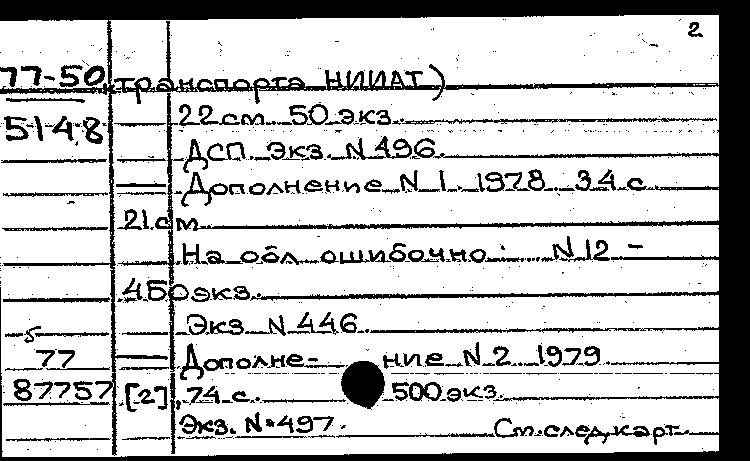 2
77-50 транспорта НИИАТ)
5148 22 см 50 экз.
ДСП. Экз. N 496.
— Дополнение N 1. 1978 34 с
21 см
На обл ошибочно: N 12 -
450 экз.
Экз. N 446.
5
77 — Дополне- ние N 2 1979
87757 [2], 74 с. 500 экз.
Экз. N 497. См. след, карт.